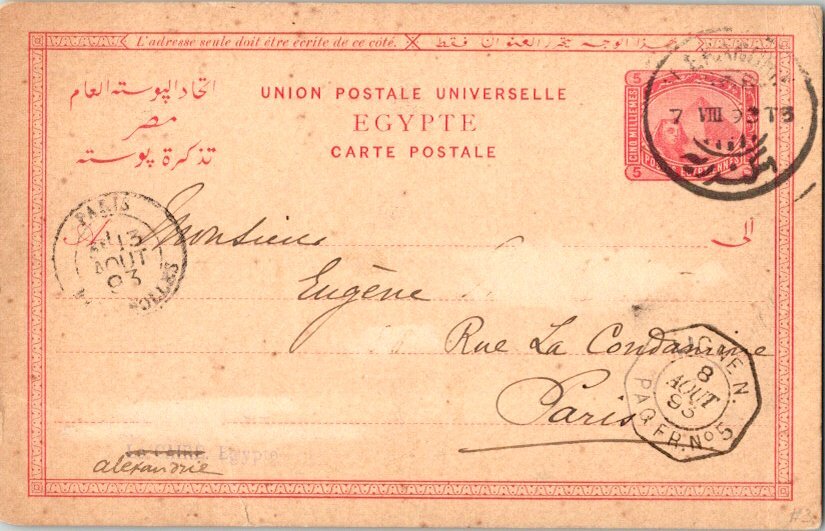 L'adresse seule doit être écrite de ce côté.
هذا الوجه محرر العنوان فقط
اتحاد البوسته العام
مصر
تذكرة بوسته
UNION POSTALE UNIVERSELLE
EGYPTE
CARTE POSTALE
5
5
CINQ MILLIEMES
5
5
7 VIII 93 T3
PARIS
13
AOUT
93
A
الى
Monsieur
Eugène
Rue La Condamine
Paris
LIGNE N.
8
AOUT
93
PAQ. FR. No 5
Le CAIRE, Egypte
alexandrie